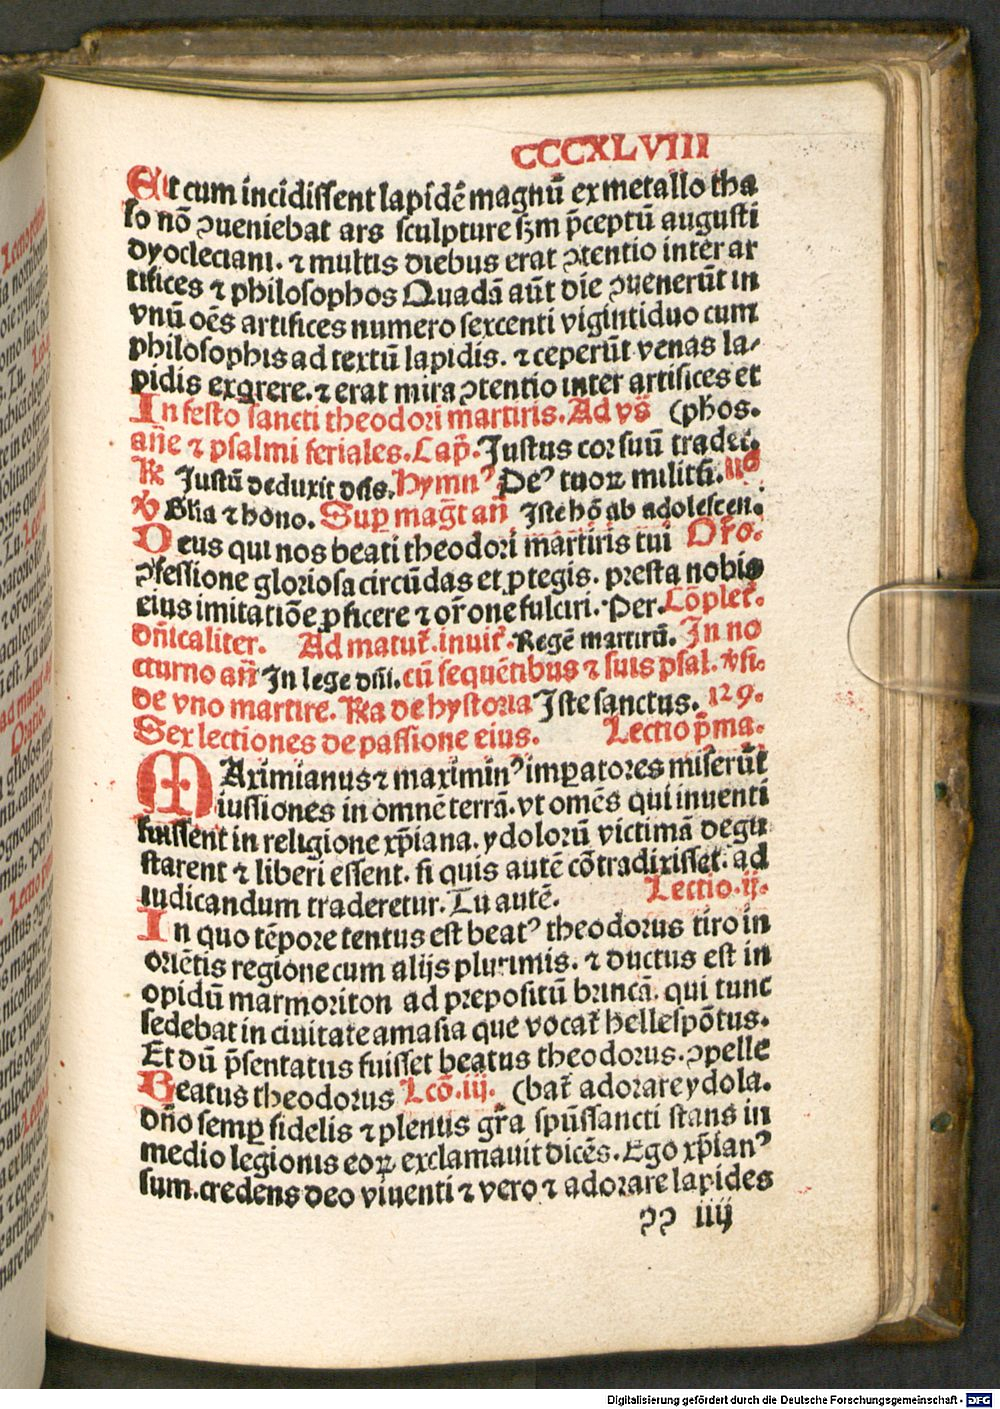 CCCXLVIII
Et cum incidissent lapidē magnū ex metallo tha
so nō ꝯueniebat ars sculpture sꝫm p̄ceptū augusti
dyocleciani. ⁊ multis diebus erat ꝯtentio inter ar
tifices ⁊ philosophos Quadā aūt die ꝯuenerūt in
vnū oēs artifices numero sexcenti vigintiduo cum
philosophis ad textū lapidis. ⁊ ceperūt venas la-
pidis exqrere. ⁊ erat mira ꝯtentio inter artifices et
In festo sancti theodori martiris. Ad vs̄ (phos.
añe ⁊ psalmi feriales. Cap̄. Justus cor suū tradet.
℟ Justū deduxit dñs. Hymnꝰ Deꝰ tuoꝝ militū.
℣ Glia ⁊ hono. Suꝑ mag̃t añ Iste hō ab adolescen.
Deus qui nos beati theodori martiris tui Oro.
ꝯfessione gloriosa circūdas et ꝓtegis. presta nobis
eius imitatiōe ꝓficere ⁊ oŕone fulciri. Per. Cōplet̄.
dñicaliter. Ad matut̄. inuit̄. Regē martirū. In no
cturno añ In lege dñi. cū sequētibus ⁊ suis psal. ℣si.
de vno martire. ℟a de hystoria Iste sanctus. 129.
Sex lectiones de passione eius. Lectio p̄ma.
MAximianus ⁊ maximinꝰ imꝑatores miserūt
iussiones in omnē terrā. vt omēs qui inuenti
fuissent in religione xp̄iana. ydolorū victimā degu
starent ⁊ liberi essent. si quis autē cōtradixisset. ad
iudicandum traderetur. Tu autē. Lectio. ij.
In quo tēpore tentus est beatꝰ theodorus tiro in
oriētis regione cum alijs plurimis. ⁊ ductus est in
opidū marmoriton ad prepositū brincā. qui tunc
sedebat in ciuitate amasia que vocat̄ hellespōtus.
Et dū p̄sentatus fuisset beatus theodorus. ꝯpelle
Beatus theodorus Lcō. iij. (bat̄ adorare ydola.
dño semꝑ fidelis ⁊ plenus gr̄a spūssancti stans in
medio legionis eoꝝ exclamauit dicēs. Ego xp̄ianꝰ
sum. credens deo viuenti ⁊ vero ⁊ adorare lapides
ꝯꝯ iiij
Digitalisierung gefördert durch die Deutsche Forschungsgemeinschaft - DFG